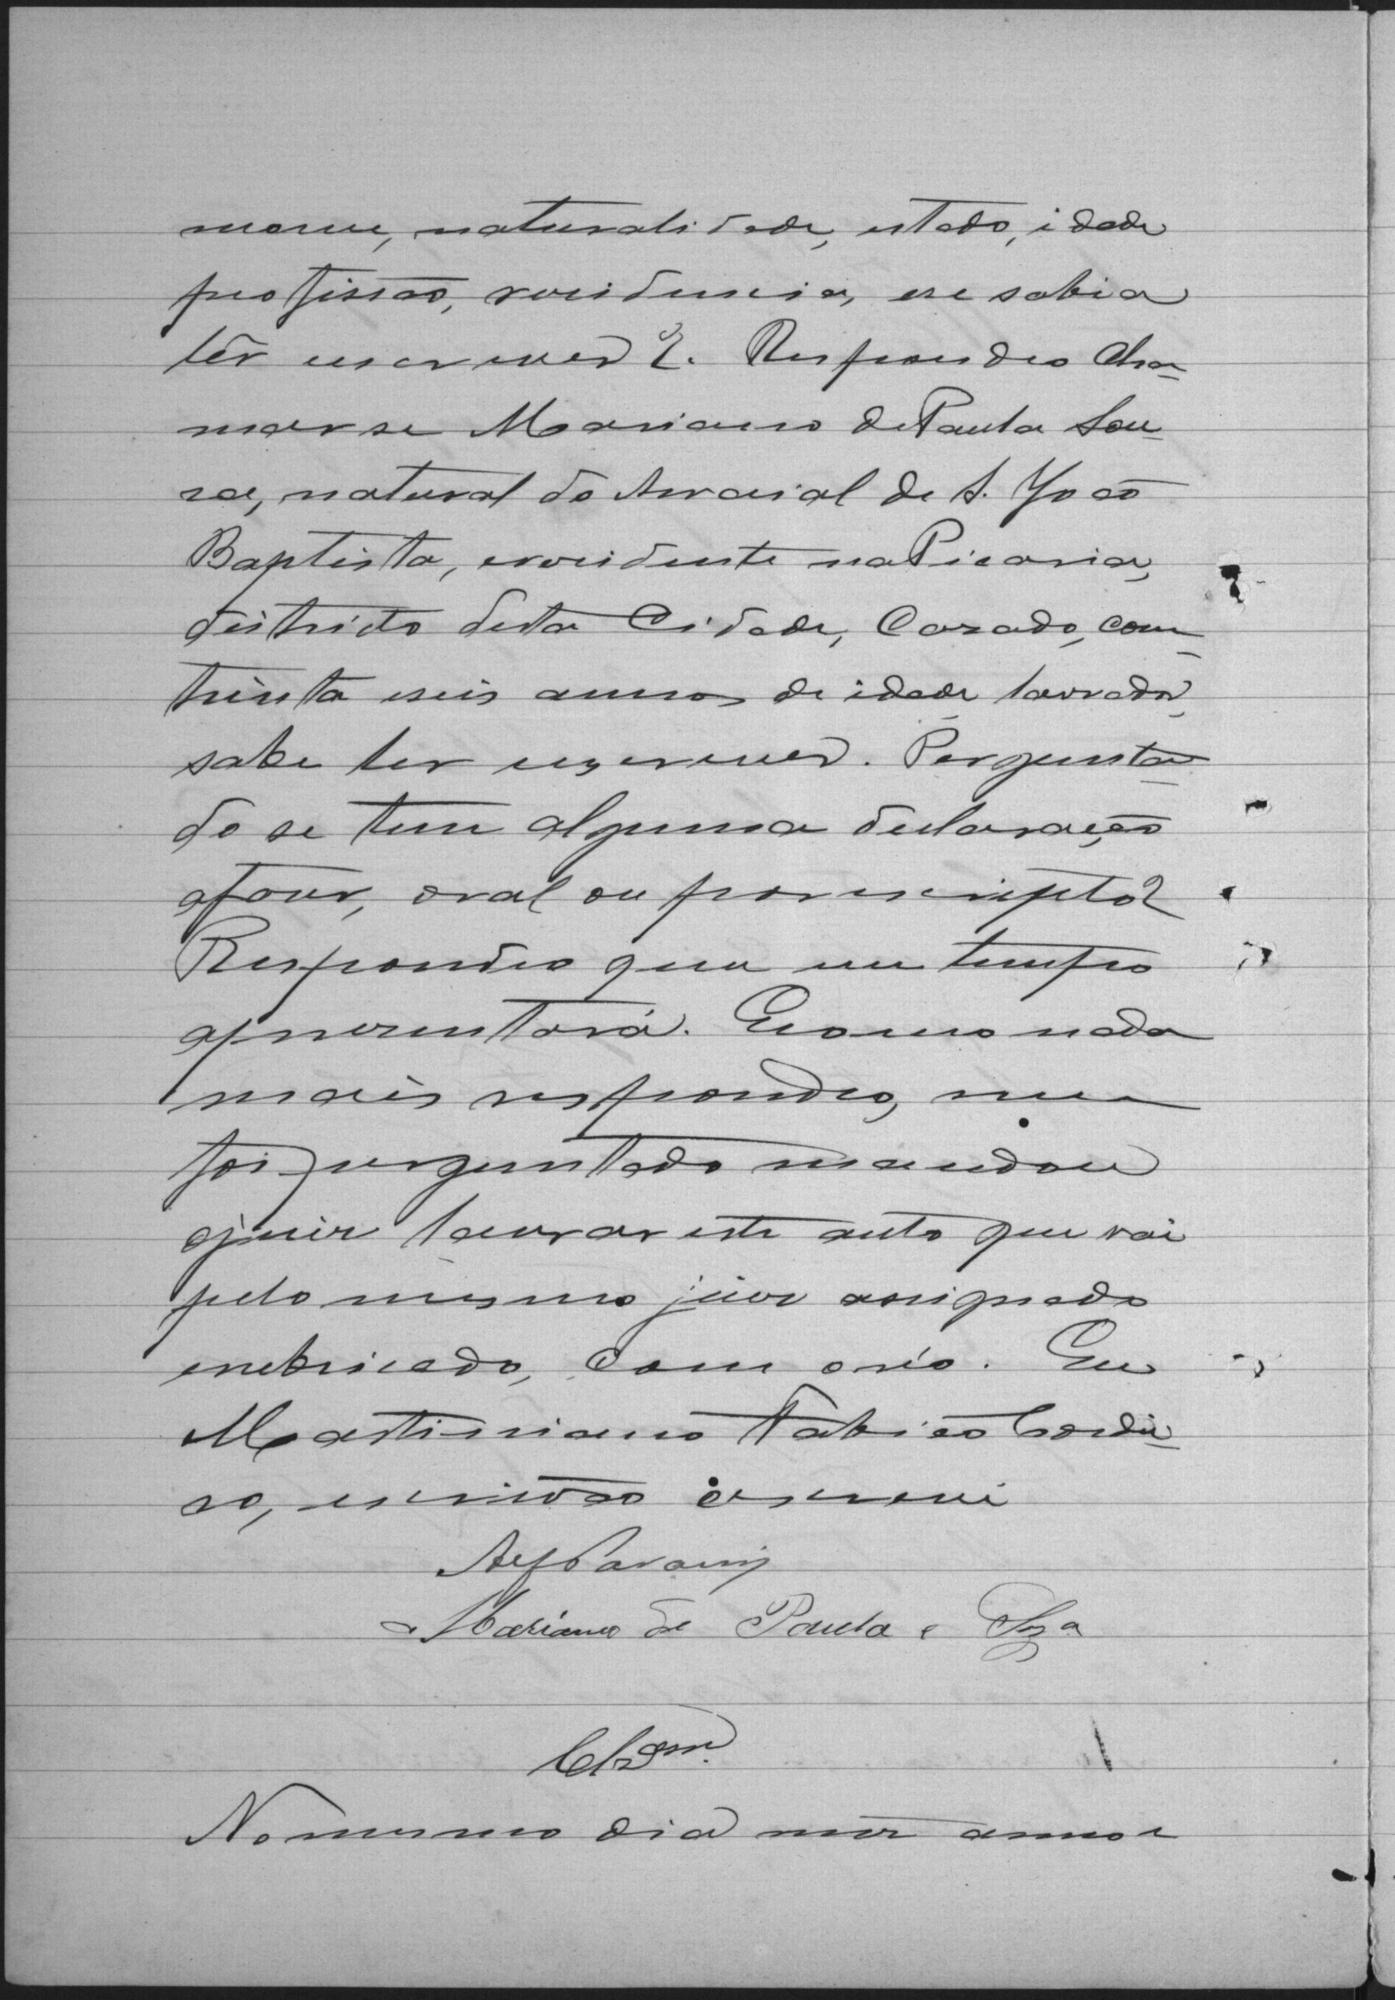 nome, naturalidade, estado, idade
profissão, residencia, e se sabia
lêr e escrever?. Respondeo Cha-
mar se Mariano de Paula Sou-
za, natural do Arraial de S. João
Baptista, e residente na Picaria,
districto desta Cidade, Cazado, com
trinta e seis annos de idade lavrador,
sabe ler e escrever. Pergunta-
do se tem alguma declaração
afazer, oral ou por escripto?
Respondeo que em tempo
apresentará. E como nada
mais respondeo, nem
foi perguntado mandou
o juiz lavrar este auto que vai
pelo mesmo juiz assignado
e rubricado, com o réo. Eu
Martiniano Fabião Cordei-
ro, escrivão o escrevi
Mariano de Paula e Sza
Clzam.
No mesmo dia mez anno e